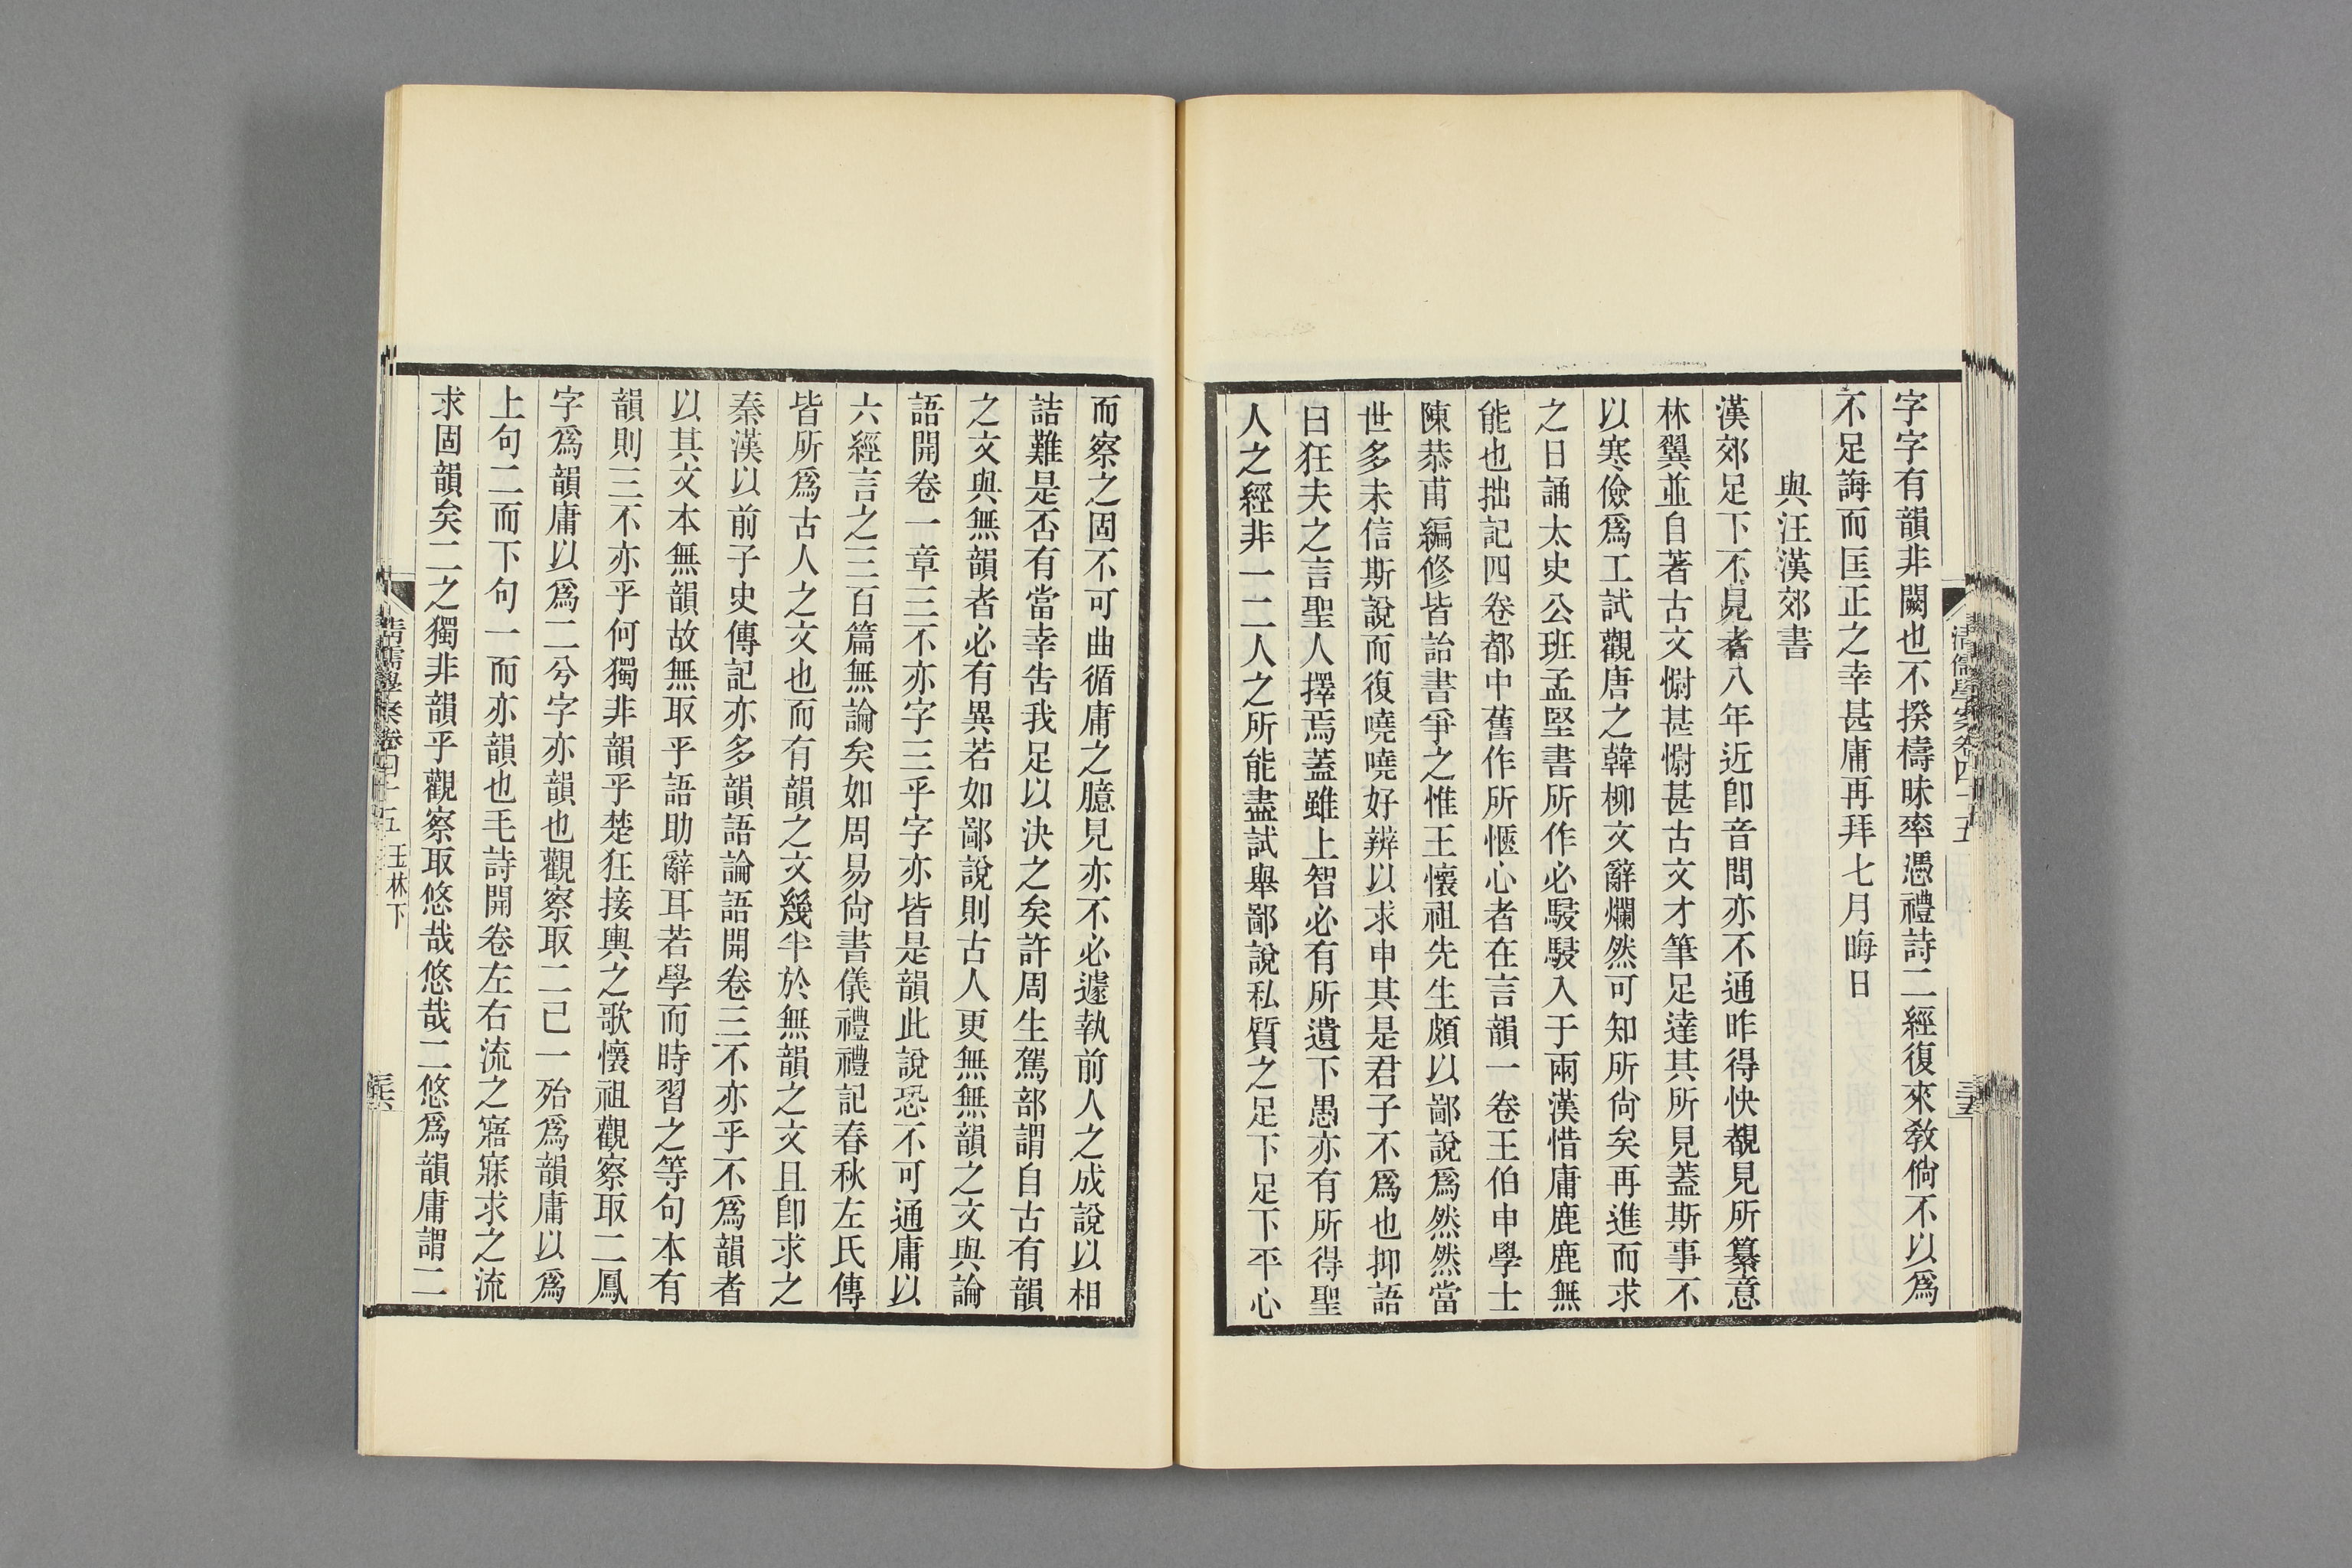 字字有韻非闕也不揆檮昧率憑禮詩二經復來敎倘不以爲
不足誨而匡正之幸甚庸再拜七月晦日
與汪漢郊書
漢郊足下不見者八年近卽音問亦不通昨得快覩見所纂意
林翼並自著古文慰甚慰甚古文才筆足達其所見蓋斯事不
以寒儉爲工試觀唐之韓柳文辭爛然可知所尙矣再進而求
之日誦太史公班孟堅書所作必駸駸入于兩漢惜庸鹿鹿無
能也拙記四卷都中舊作所愜心者在言韻一卷王伯申學士
陳恭甫編修皆詒書爭之惟王懷祖先生頗以鄙說爲然然當
世多未信斯說而復嘵嘵好辨以求申其是君子不爲也抑語
曰狂夫之言聖人擇焉蓋雖上智必有所遺下愚亦有所得聖
人之經非一二人之所能盡試舉鄙說私質之足下足下平心
清儒學案卷四十五
三五
而察之固不可曲循庸之臆見亦不必遽執前人之成說以相
詰難是否有當幸吿我足以決之矣許周生駕部謂自古有韻
之文與無韻者必有異若如鄙說則古人更無無韻之文與論
語開卷一章三不亦字三乎字亦皆是韻此說恐不可通庸以
六經言之三百篇無論矣如周易尙書儀禮禮記春秋左氏傳
皆所爲古人之文也而有韻之文幾半於無韻之文且卽求之
秦漢以前子史傳記亦多韻語論語開卷三不亦乎不爲韻者
以其文本無韻故無取乎語助辭耳若學而時習之等句本有
韻則三不亦乎何獨非韻乎楚狂接輿之歌懷祖觀察取二鳳
字爲韻庸以爲二兮字亦韻也觀察取二已一殆爲韻庸以爲
上句二而下句一而亦韻也毛詩開卷左右流之寤寐求之流
求固韻矣二之獨非韻乎觀察取悠哉悠哉二悠爲韻庸謂二
清儒學案卷四十五 玉林下
三六